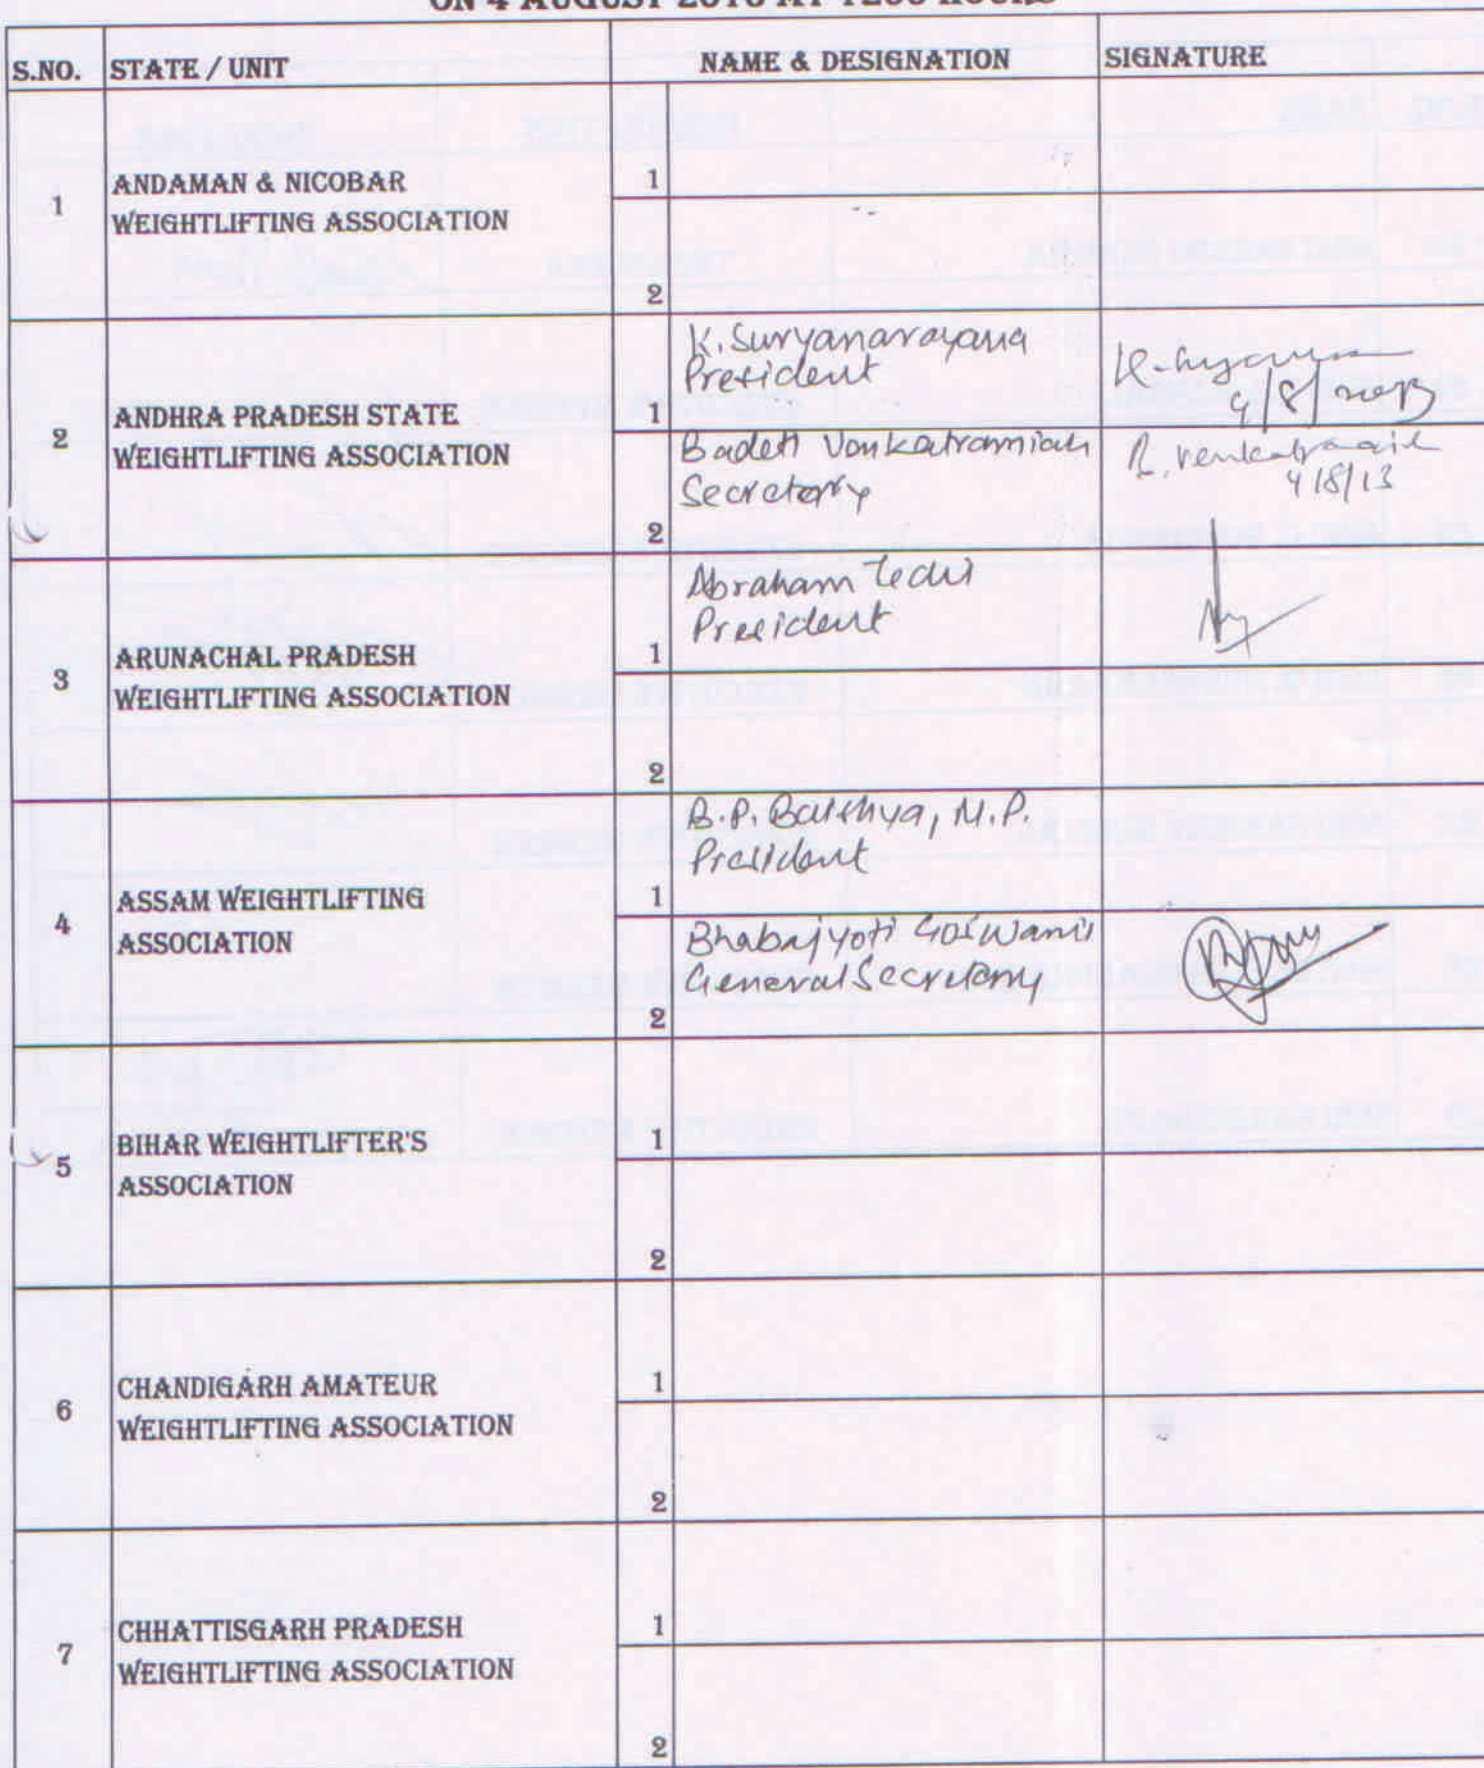 ON 4 AUGUST 2013 AT 1200 HOURS
S.NO. STATE / UNIT NAME & DESIGNATION SIGNATURE
1 ANDAMAN & NICOBAR WEIGHTLIFTING ASSOCIATION
1
2
2 ANDHRA PRADESH STATE WEIGHTLIFTING ASSOCIATION
1 K. Suryanarayana
President
4/8/2013
2 Badeti Venkatramiah
Secretary
B. Venkatramaiah
4/8/13
3 ARUNACHAL PRADESH WEIGHTLIFTING ASSOCIATION
1 Abraham Techi
President
2
4 ASSAM WEIGHTLIFTING ASSOCIATION
1 B.P. Baishya, M.P.
President
2 Bhabajyoti Goswami
General Secretary
5 BIHAR WEIGHTLIFTER'S ASSOCIATION
1
2
6 CHANDIGARH AMATEUR WEIGHTLIFTING ASSOCIATION
1
2
7 CHHATTISGARH PRADESH WEIGHTLIFTING ASSOCIATION
1
2